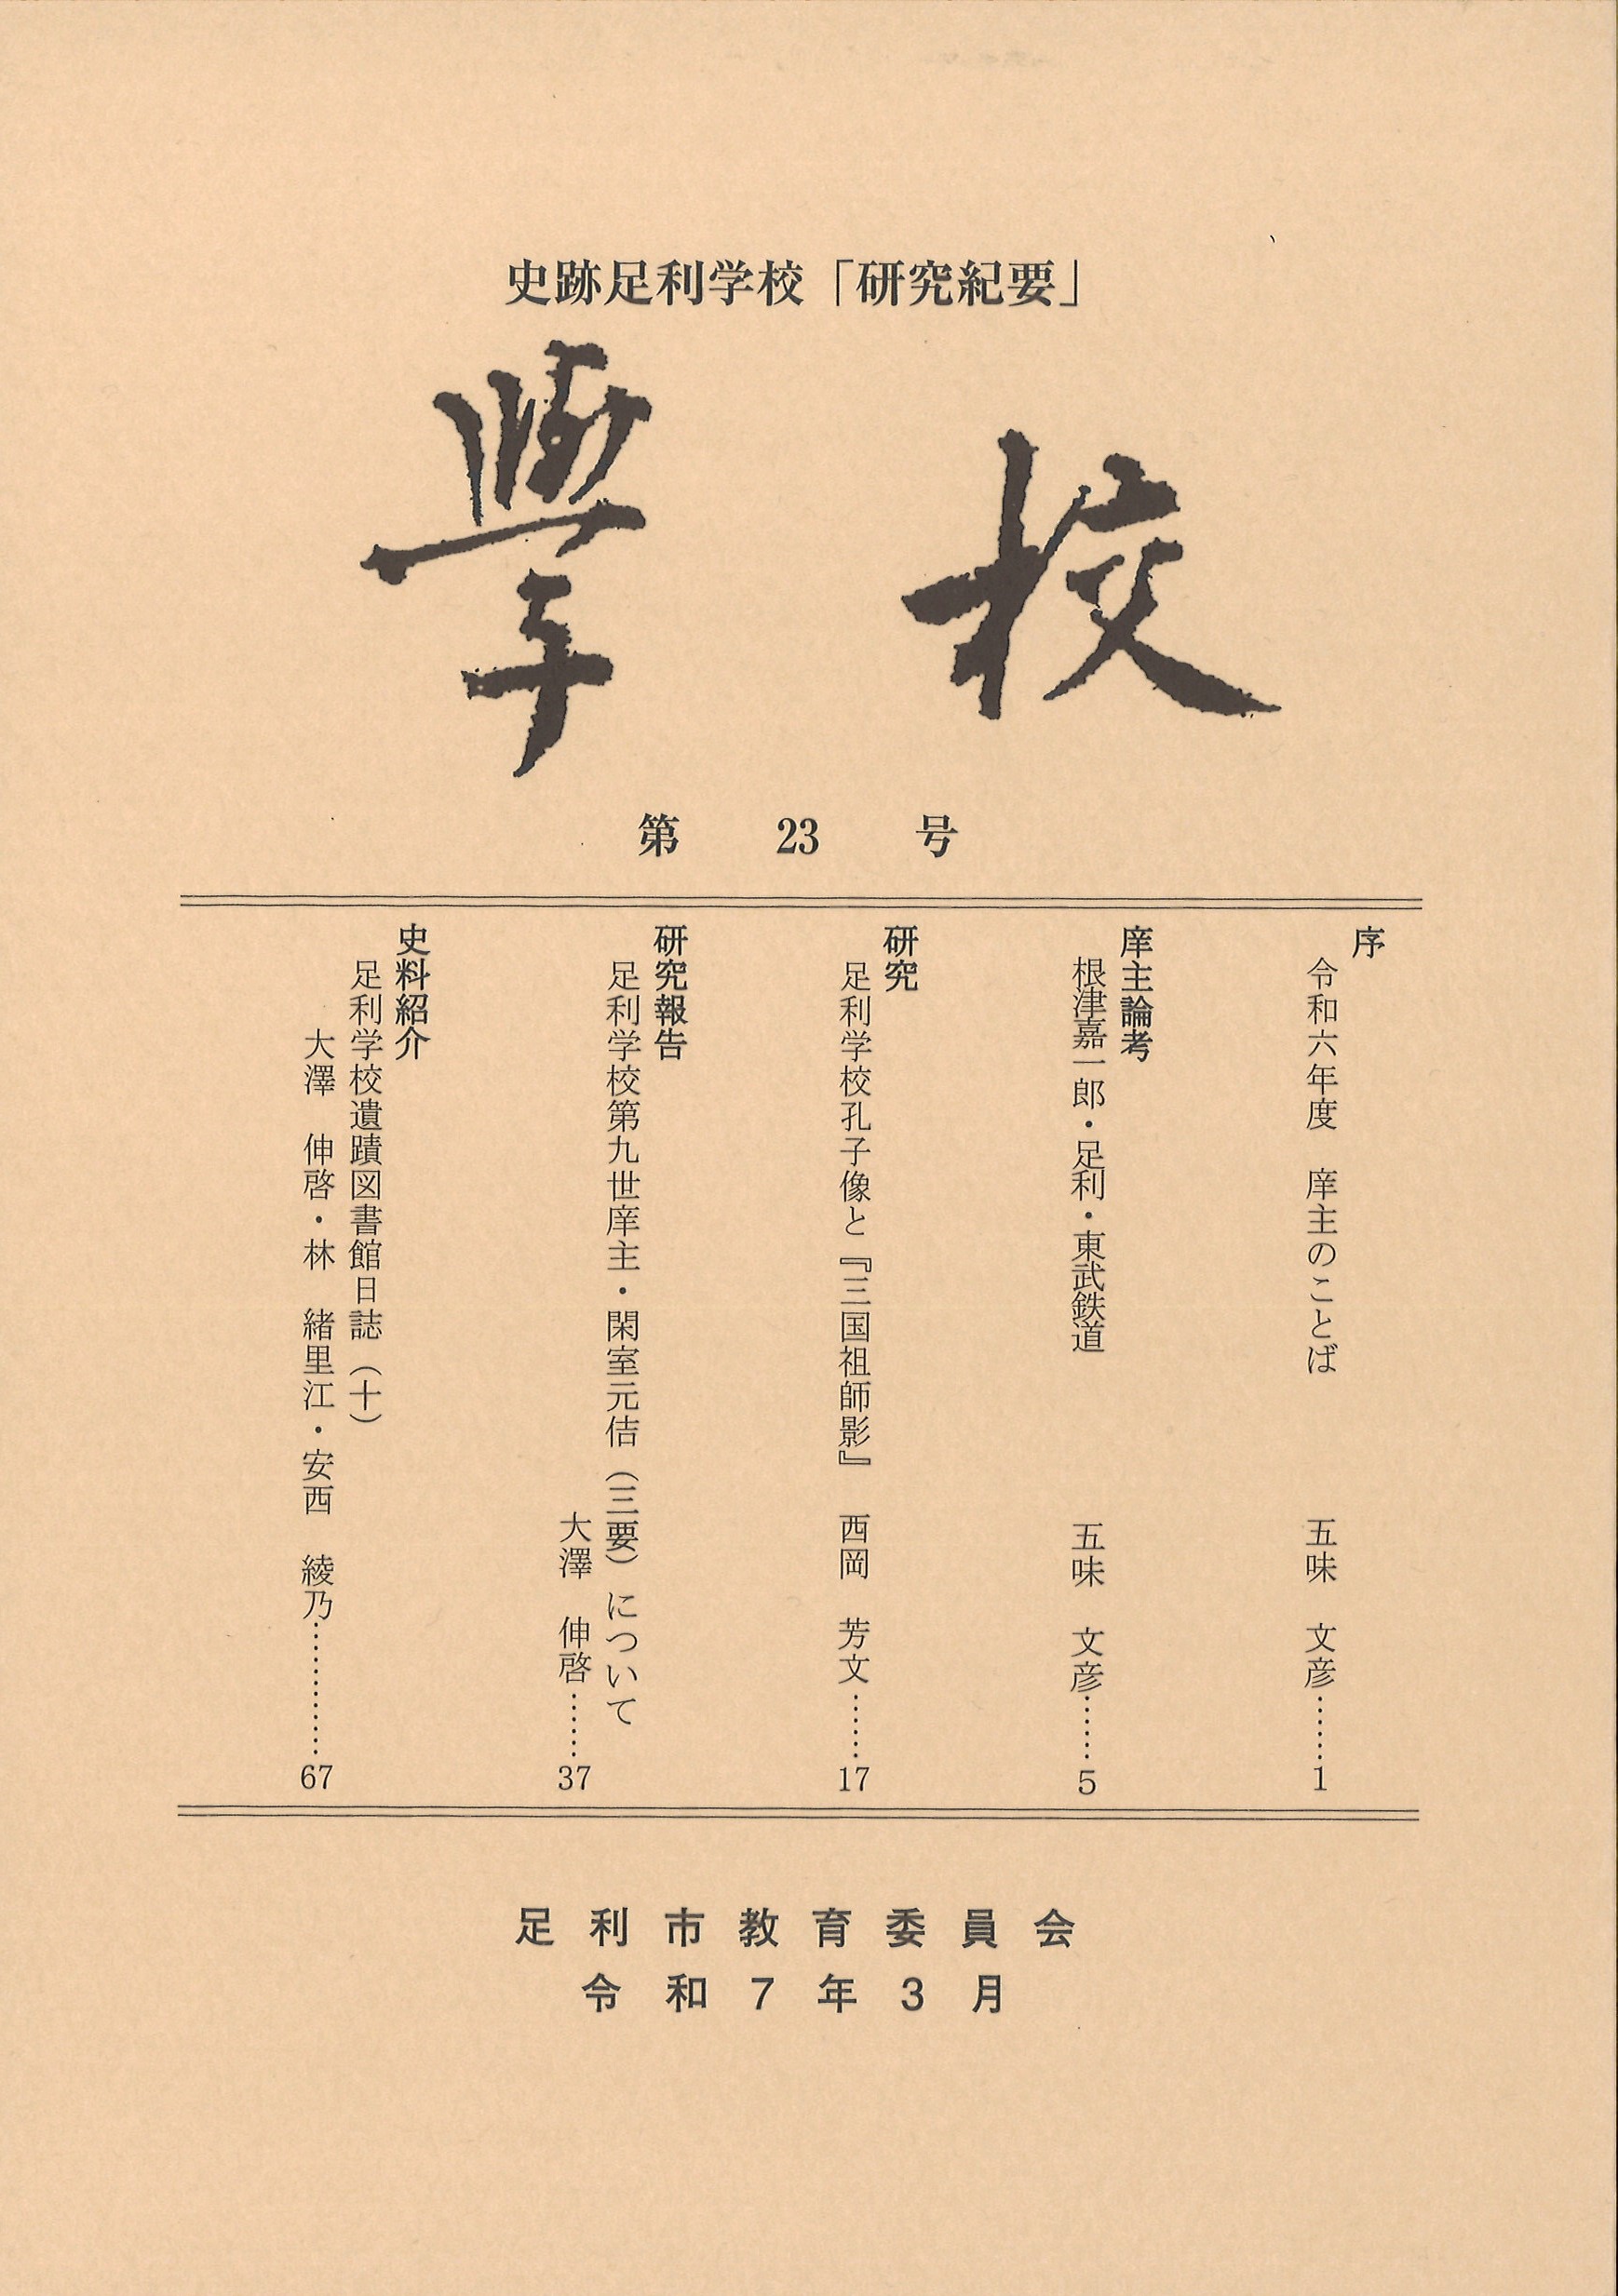 史跡足利学校「研究紀要」
學校
第 23 号
序
令和六年度 庠主のことば 五味 文彦……1
庠主論考
根津嘉一郎・足利・東武鉄道 五味 文彦……5
研究
足利学校孔子像と『三国祖師影』 西岡 芳文……17
研究報告
足利学校第九世庠主・閑室元佶（三要）について
大澤 伸啓……37
史料紹介
足利学校遺蹟図書館日誌（十）
大澤 伸啓・林 緒里江・安西 綾乃…………67
足利市教育委員会
令和7年3月